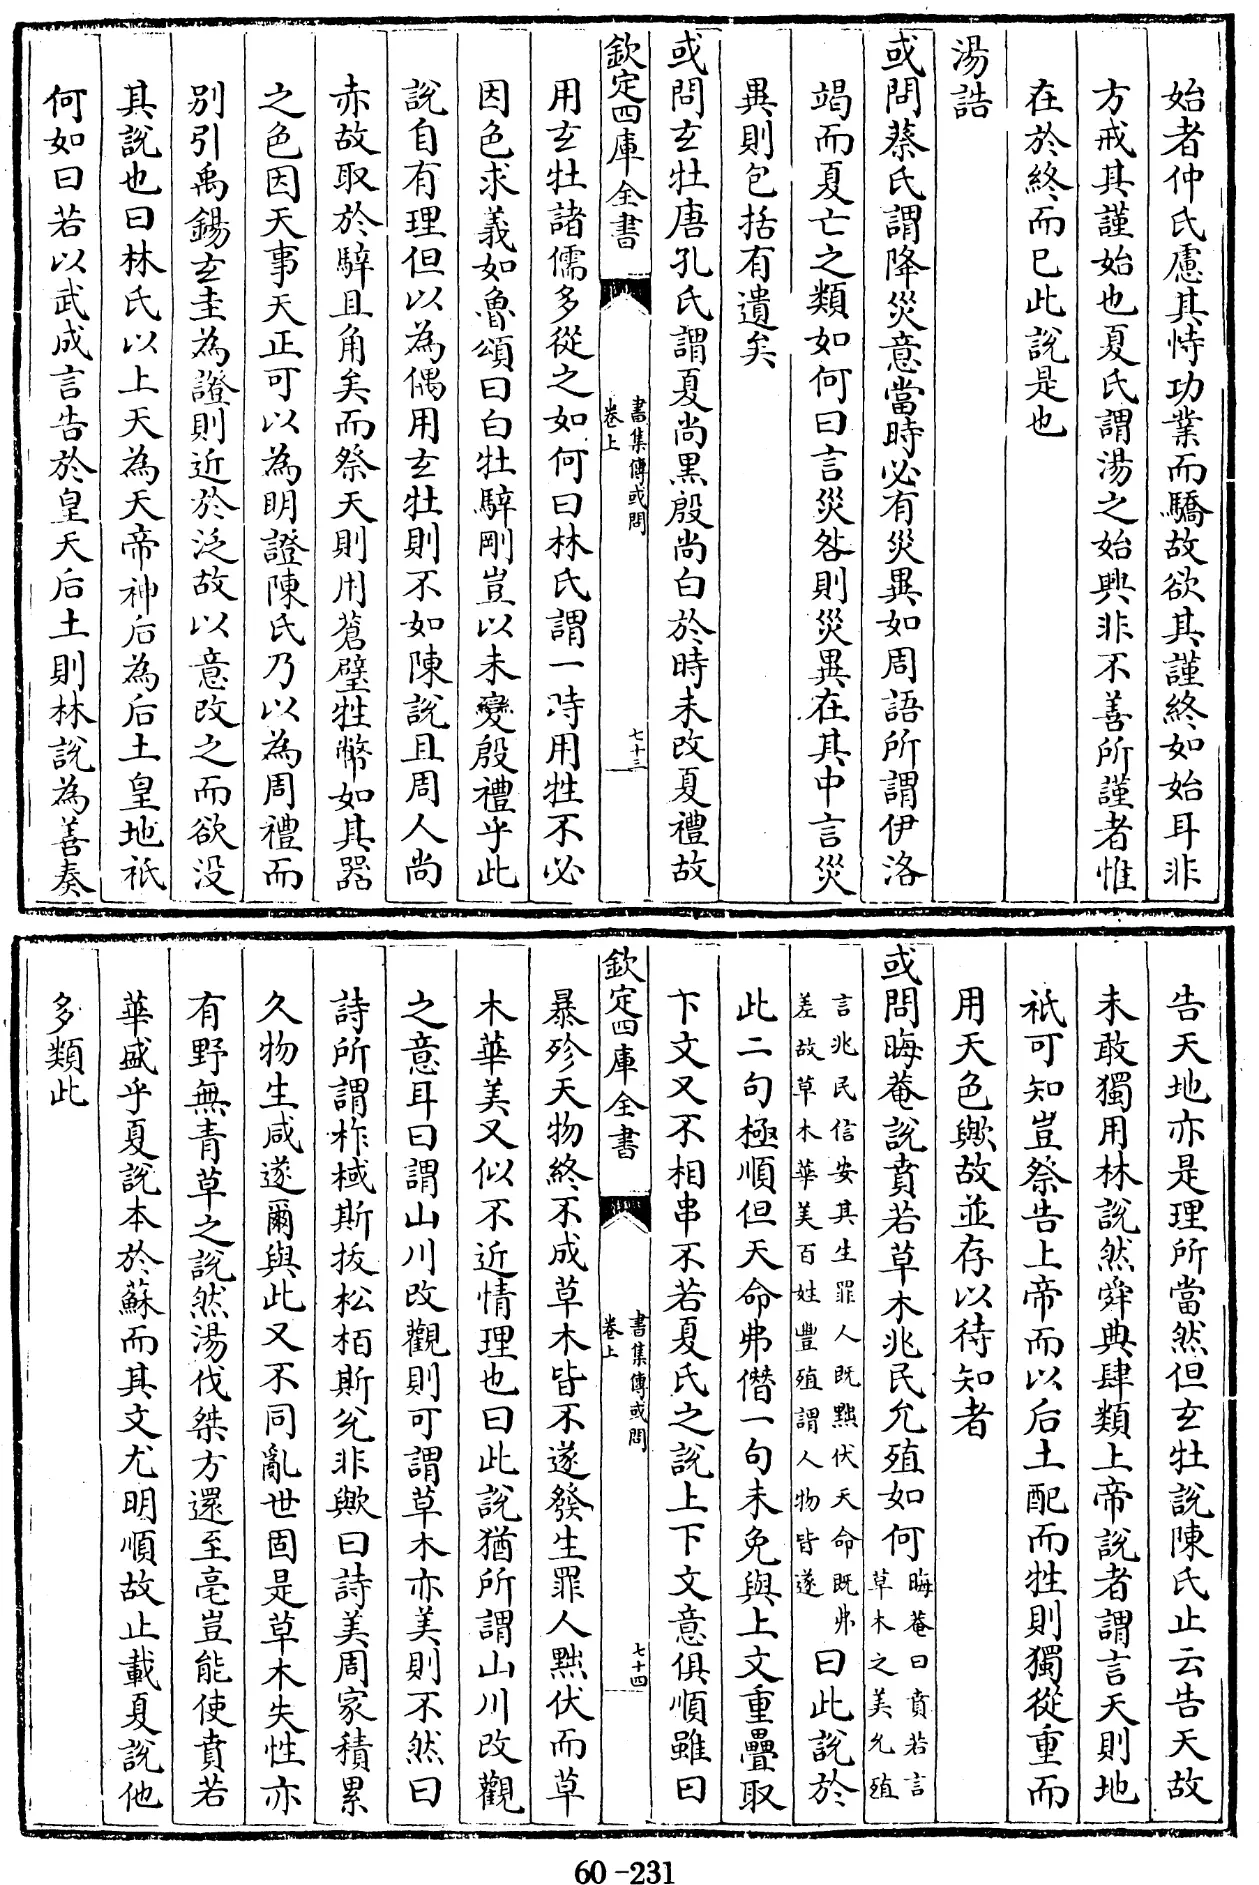 始者仲氏慮其恃功業而驕故欲其謹終如始耳非
方戒其謹始也夏氏謂湯之始興非不善所謹者惟
在於終而已此說是也
湯誥
或問蔡氏謂降災意當時必有災異如周語所謂伊洛
竭而夏亡之類如何曰言災咎則災異在其中言災
異則包括有遺矣
或問玄牡唐孔氏謂夏尚黑殷尚白於時未改夏禮故
欽定四庫全書
書集傳或問
卷上
七十三
用玄牡諸儒多從之如何曰林氏謂一時用牲不必
因色求義如魯頌曰白牡騂剛豈以未變殷禮乎此
說自有理但以為偶用玄牡則不如陳說且周人尚
赤故取於騂且角矣而祭天則用蒼璧牲幣如其器
之色因天事天正可以為明證陳氏乃以為周禮而
別引禹錫玄圭為證則近於泛故以意改之而欲没
其說也曰林氏以上天為天帝神后為后土皇地祇
何如曰若以武成言告於皇天后土則林說為善奏
告天地亦是理所當然但玄牡說陳氏止云告天故
未敢獨用林說然舜典肆類上帝說者謂言天則地
祇可知豈祭告上帝而以后土配而牲則獨從重而
用天色歟故並存以待知者
或問晦菴說賁若草木兆民允殖如何晦菴曰賁若言
草木之美允殖
言兆民信安其生罪人既黜伏天命既弗
差故草木華美百姓豐殖謂人物皆遂
曰此說於
此二句極順但天命弗僭一句未免與上文重疊取
下文又不相串不若夏氏之說上下文意俱順雖曰
欽定四庫全書
書集傳或問
卷上
七十四
暴殄天物終不成草木皆不遂發生罪人黜伏而草
木華美又似不近情理也曰此說猶所謂山川改觀
之意耳曰謂山川改觀則可謂草木亦美則不然曰
詩所謂柞棫斯拔松栢斯兌非歟曰詩美周家積累
久物生咸遂爾與此又不同亂世固是草木失性亦
有野無青草之說然湯伐桀方還至亳豈能使賁若
華盛乎夏說本於蘇而其文尤明順故止載夏說他
多類此
60-231